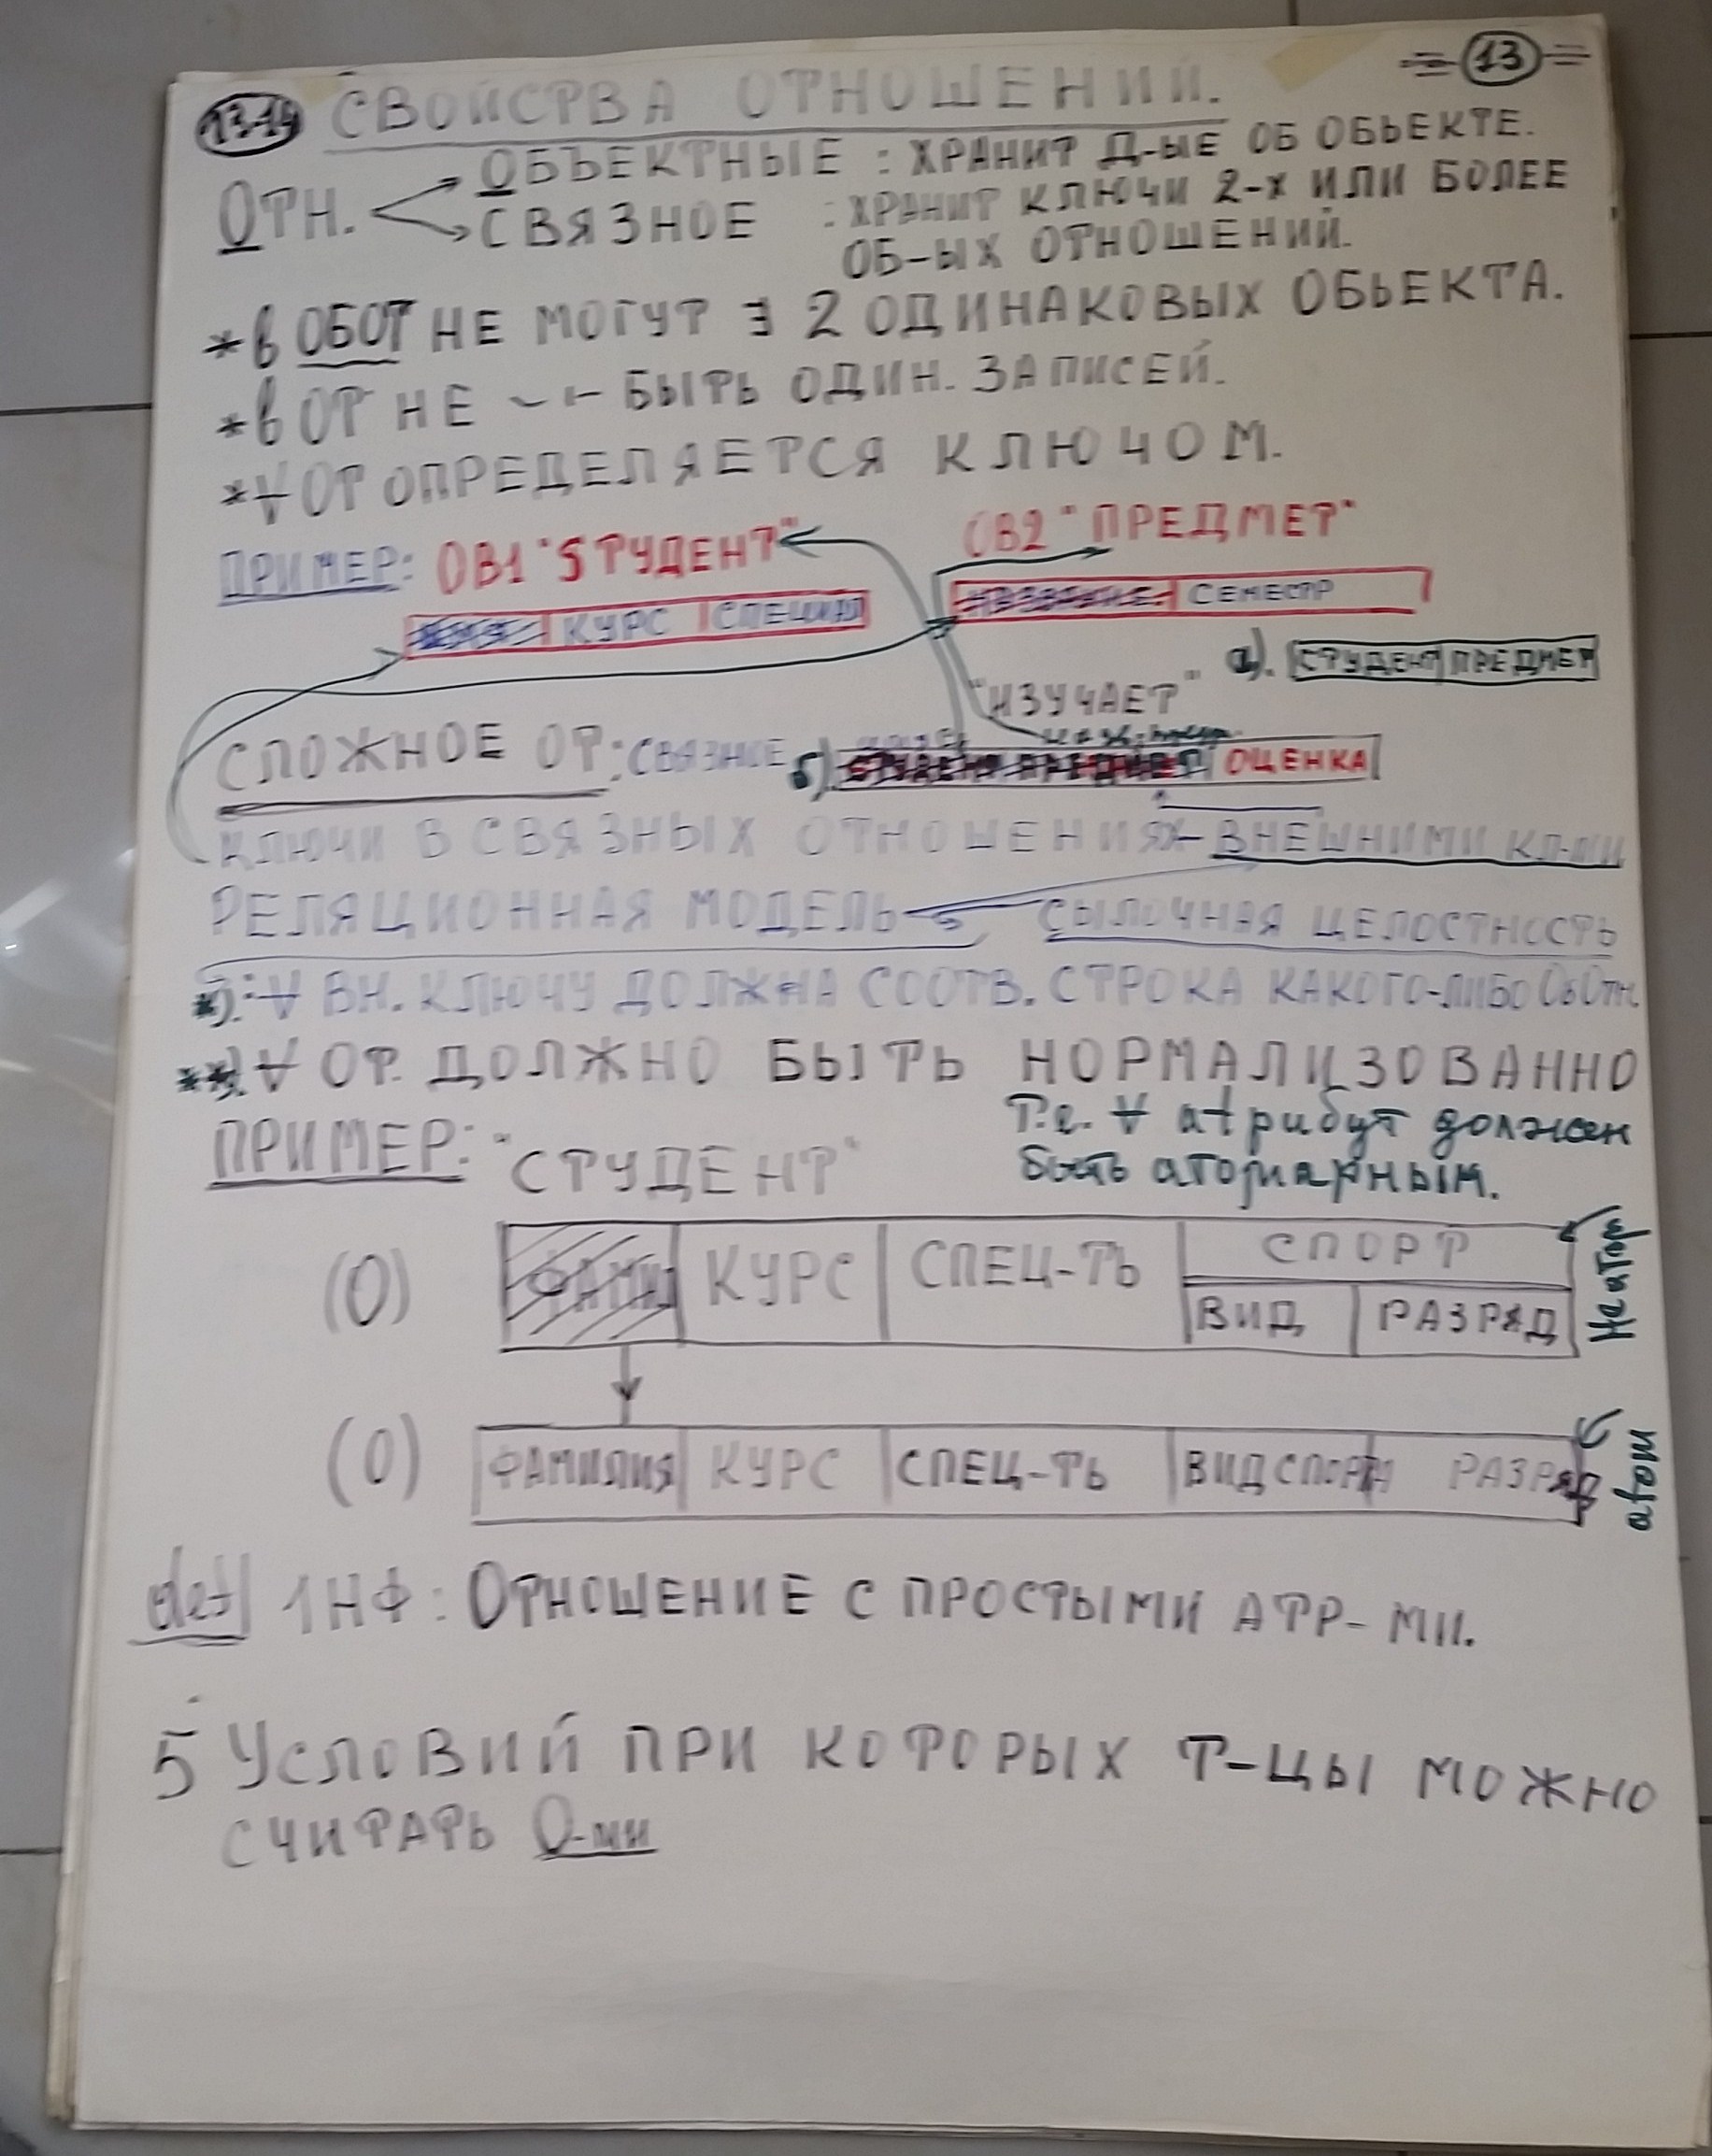 13.14 СВОЙСТВА ОТНОШЕНИЙ. =13=
ОТН. ОБЪЕКТНЫЕ : ХРАНИТ Д-ЫЕ ОБ ОБЬЕКТЕ.
СВЯЗНОЕ : ХРАНИТ КЛЮЧИ 2-Х ИЛИ БОЛЕЕ
ОБ-ЫХ ОТНОШЕНИЙ.
* в ОБОТ НЕ МОГУТ ∃ 2 ОДИНАКОВЫХ ОБЬЕКТА.
* в ОТ НЕ -〃- БЫТЬ ОДИН. ЗАПИСЕЙ.
* ∀ ОТ ОПРЕДЕЛЯЕТСЯ КЛЮЧОМ.
ПРИМЕР: ОВ1 "SТУДЕНТ" ОВ2 "ПРЕДМЕТ"
КУРС СПЕЦИАЛ НАЗВАНИЕ СЕМЕСТР
а). СТУДЕНТ ПРЕДМЕТ
"ИЗУЧАЕТ"
СЛОЖНОЕ ОТ: СВЯЗНОЕ б) СТУДЕНТ ПРЕДМЕТ ОЦЕНКА
КЛЮЧИ В СВЯЗНЫХ ОТНОШЕНИЯХ - ВНЕШНИМИ КЛ-МИ
РЕЛЯЦИОННАЯ МОДЕЛЬ СЫЛОЧНАЯ ЦЕЛОСТНОСТЬ
*): ∀ ВН. КЛЮЧУ ДОЛЖНА СООТВ. СТРОКА КАКОГО-ЛИБО ОбОтн.
**) ∀ ОТ. ДОЛЖНО БЫТЬ НОРМАЛИЗОВАННО
Т.е. ∀ atрибут должен
быть атомарным.
ПРИМЕР: "СТУДЕНТ"
(О) ФАМИЛ КУРС СПЕЦ-ТЬ СПОРТ
ВИД РАЗРЯД
Не атом
(О) ФАМИЛИЯ КУРС СПЕЦ-ТЬ ВИД СПОРТА РАЗРЯД
atom
def 1НФ: ОТНОШЕНИЕ С ПРОСТЫМИ АТР-МИ.
5 УСЛОВИЙ ПРИ КОТОРЫХ Т-ЦЫ МОЖНО
СЧИТАТЬ О-МИ